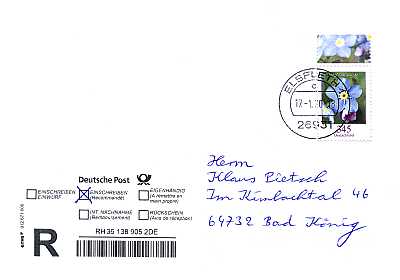 ELSFLETH 1
c
26931
345
Deutschland
Deutsche Post
EINSCHREIBEN
EINWURF
EINSCHREIBEN
(Recommandé)
EIGENHÄNDIG
(A remettre en
main propre)
INT. NACHNAHME
(Remboursement)
RÜCKSCHEIN
(Avis de réception)
R
RH 35 138 905 2DE
Herrn
Klaus Bietsch
Im Kimbachtal 46
64732 Bad König